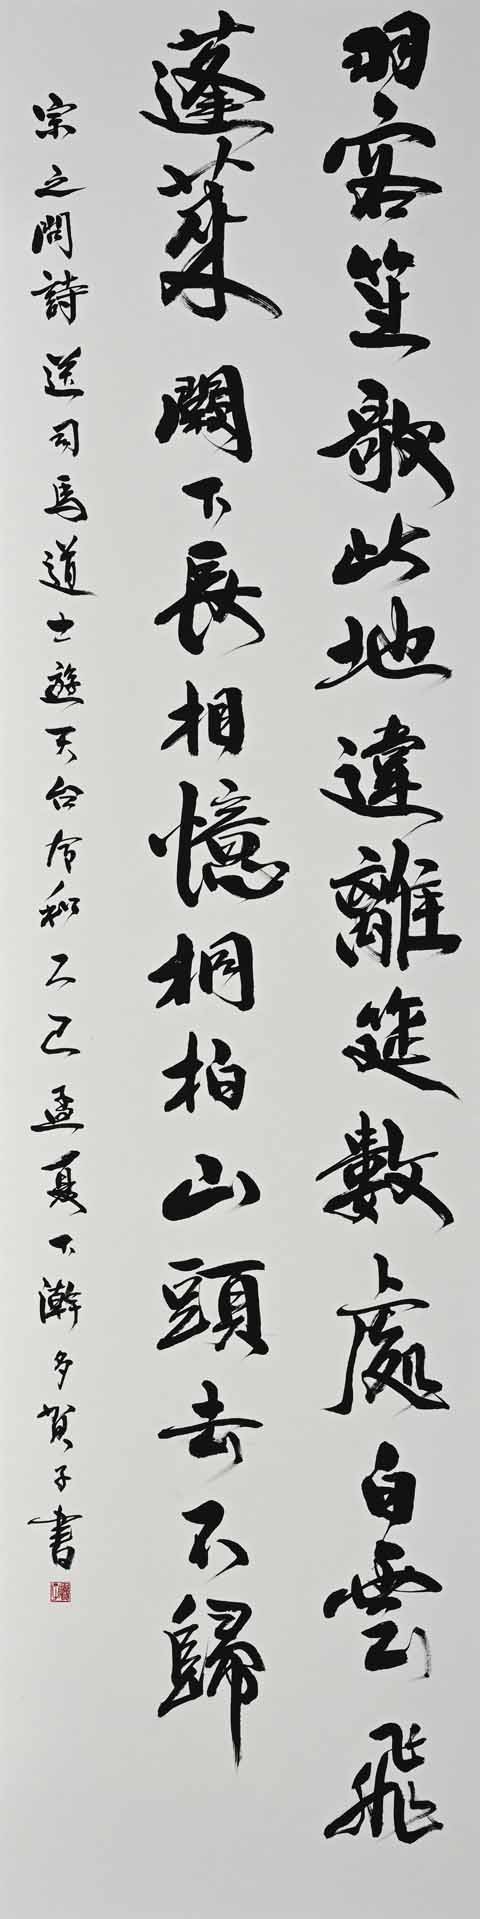 羽客笙歌此地違離筵數處白雲飛
蓬萊闕下長相憶桐柏山頭去不歸
宗之問詩送司馬道士遊天台令和乙巳孟夏下澣多賀子書